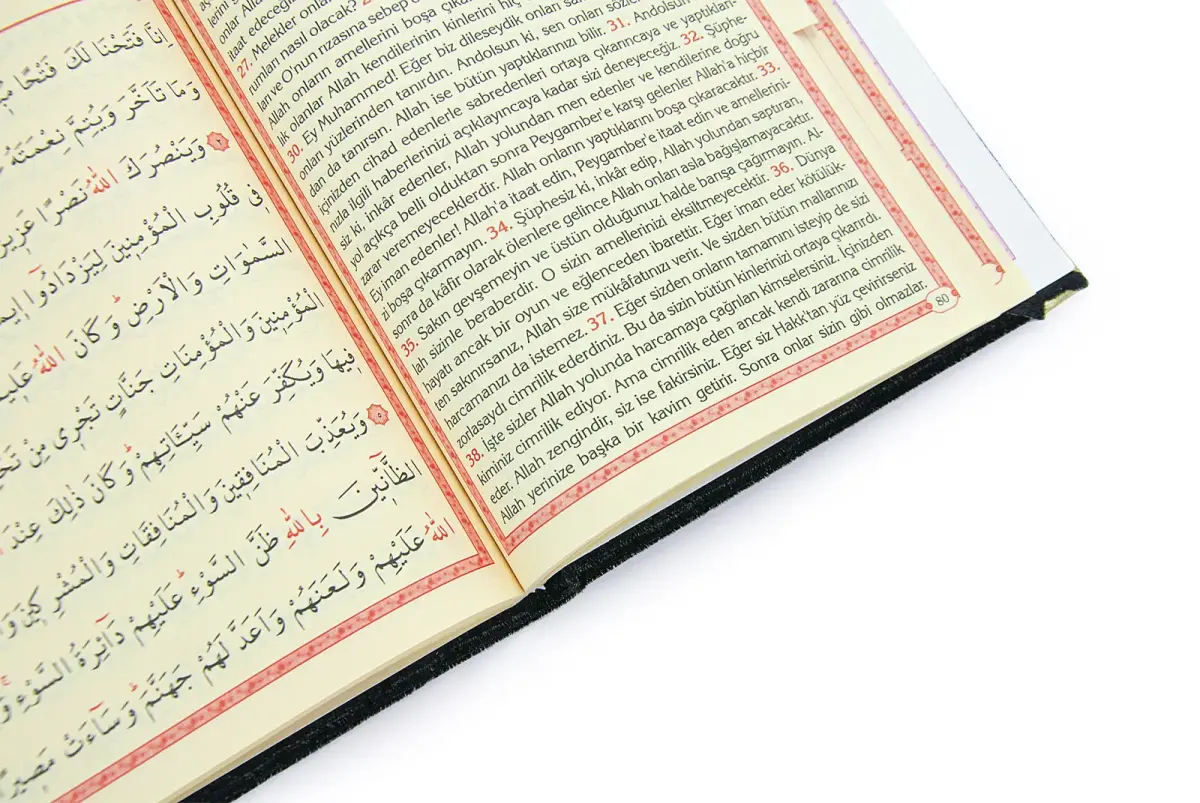 lerini
onlar
itaat
27. Melekler
rumları nasıl olacak?
ları ve O'nun rızasına sebep
Allah onların amellerini boşa
lık olanlar Allah kendilerinin kinlerini hiç
30. Ey Muhammed! Eğer biz dileseydik onları
onları yüzlerinden tanırdın. Andolsun ki, sen onları
dan da tanırsın. Allah ise bütün yaptıklarınızı bilir. 31. Andolsun
içinizden cihad edenlerle sabredenleri ortaya çıkarıncaya ve yaptıkları-
nızla ilgili haberlerinizi açıklayıncaya kadar sizi deneyeceğiz. 32. Şüphe-
siz ki, inkâr edenler, Allah yolundan men edenler ve kendilerine doğru
yol açıkça belli olduktan sonra Peygamber'e karşı gelenler Allah'a hiçbir
zarar veremeyeceklerdir. Allah onların yaptıklarını boşa çıkaracaktır. 33.
Ey iman edenler! Allah'a itaat edin, Peygamber'e itaat edin ve amellerini-
zi boşa çıkarmayın. 34. Şüphesiz ki, inkâr edip, Allah yolundan saptıran,
sonra da kâfir olarak ölenlere gelince Allah onları asla bağışlamayacaktır.
35. Sakın gevşemeyin ve üstün olduğunuz halde barışa çağırmayın. Al-
lah sizinle beraberdir. O sizin amellerinizi eksiltmeyecektir. 36. Dünya
hayatı ancak bir oyun ve eğlenceden ibarettir. Eğer iman eder kötülük-
ten sakınırsanız, Allah size mükâfatınızı verir. Ve sizden bütün mallarınızı
harcamanızı da istemez. 37. Eğer sizden onların tamamını isteyip de sizi
zorlasaydı cimrilik ederdiniz. Bu da sizin bütün kinlerinizi ortaya çıkarırdı.
38. İşte sizler Allah yolunda harcamaya çağrılan kimselersiniz. İçinizden
kiminiz cimrilik ediyor. Ama cimrilik eden ancak kendi zararına cimrilik
eder. Allah zengindir, siz ise fakirsiniz. Eğer siz Hakk'tan yüz çevirirseniz
Allah yerinize başka bir kavim getirir. Sonra onlar sizin gibi olmazlar.
80
اِنَّا فَتَحْنَا لَكَ فَتْحًا
وَمَا تَاَخَّرَ وَيُتِمَّ نِعْمَتَهُ
وَيَنْصُرَكَ اللّٰهُ نَصْرًا عَزِيزًا
فِى قُلُوبِ الْمُؤْمِنِينَ لِيَزْدَادُوٓا
السَّمٰوَاتِ وَالْاَرْضِ وَكَانَ اللّٰهُ
الْمُؤْمِنِينَ وَالْمُؤْمِنَاتِ جَنَّاتٍ تَجْرِى مِنْ
فِيهَا وَيُكَفِّرَ عَنْهُمْ سَيِّـَٔاتِهِمْ وَكَانَ ذٰلِكَ عِنْدَ
٥ وَيُعَذِّبَ الْمُنَافِقِينَ وَالْمُنَافِقَاتِ وَالْمُشْرِكِينَ
الظَّٓانِّينَ بِاللّٰهِ ظَنَّ السَّوْءِ عَلَيْهِمْ دَٓائِرَةُ السَّوْءِ
اللّٰهُ عَلَيْهِمْ وَلَعَنَهُمْ وَاَعَدَّ لَهُمْ جَهَنَّمَ وَسَٓاءَتْ مَصِيرًا